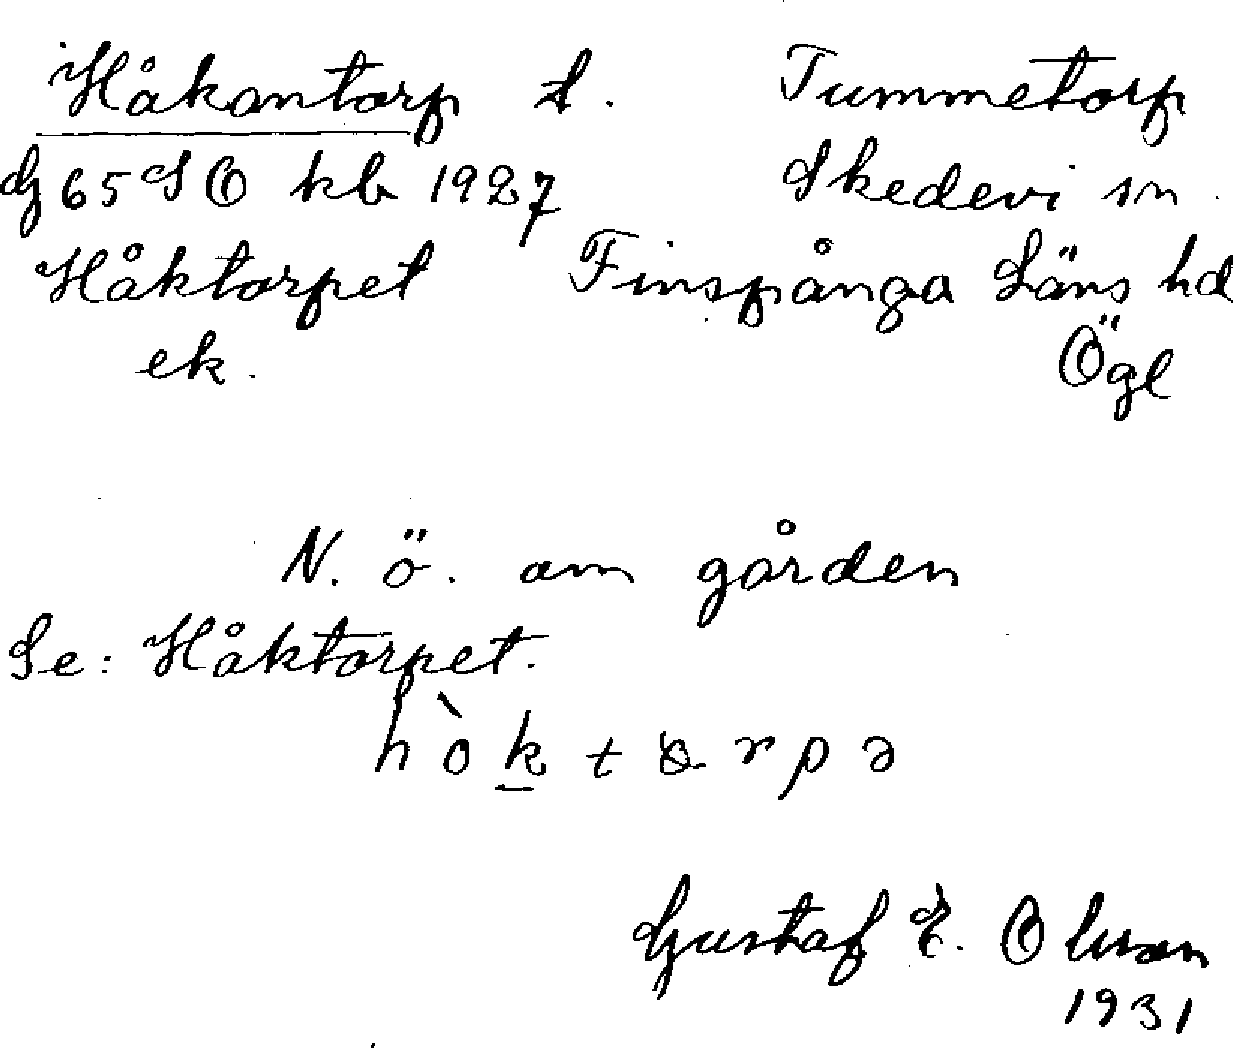 Håkantorp t. Tummetorp
G 65 SO kb 1927 Skedevi sn.
Håktorpet Finspånga Läns hd
ek. Ögl
N. ö. om gården
Se: Håktorpet.
hòk̲tɔrpə
Gustaf E. Olsson
1931